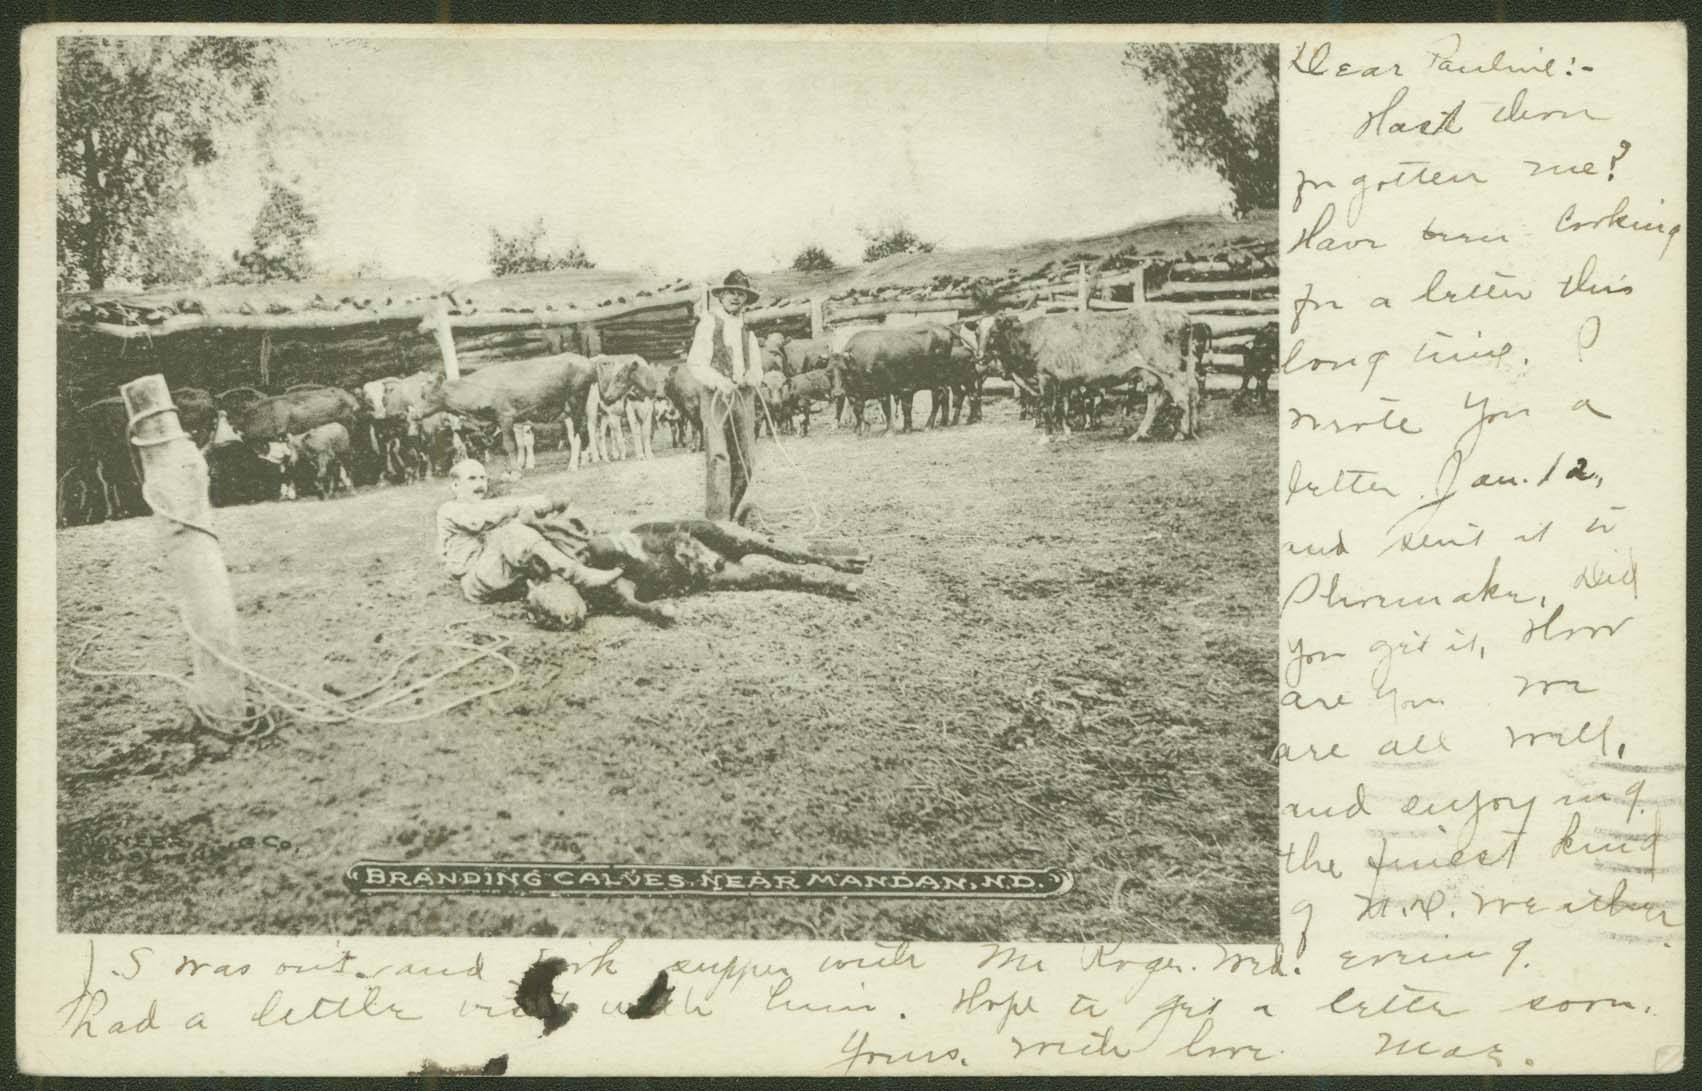 Dear Pauline:-
Hast thou
forgotten me?
Have been looking
for a letter this
long time. I
wrote you a
letter Jan. 12,
and sent it to
Shoemaker, Did
you get it, How
are you We
are all well,
and enjoying
the finest kind
of N.D. weather.
J.S was out and took supper with Mr Roger. Wed. evening.
had a little visit with him. Hope to get a letter soon.
Yours. with love Mae.
Co.
"BRANDING CALVES, NEAR MANDAN, N.D."